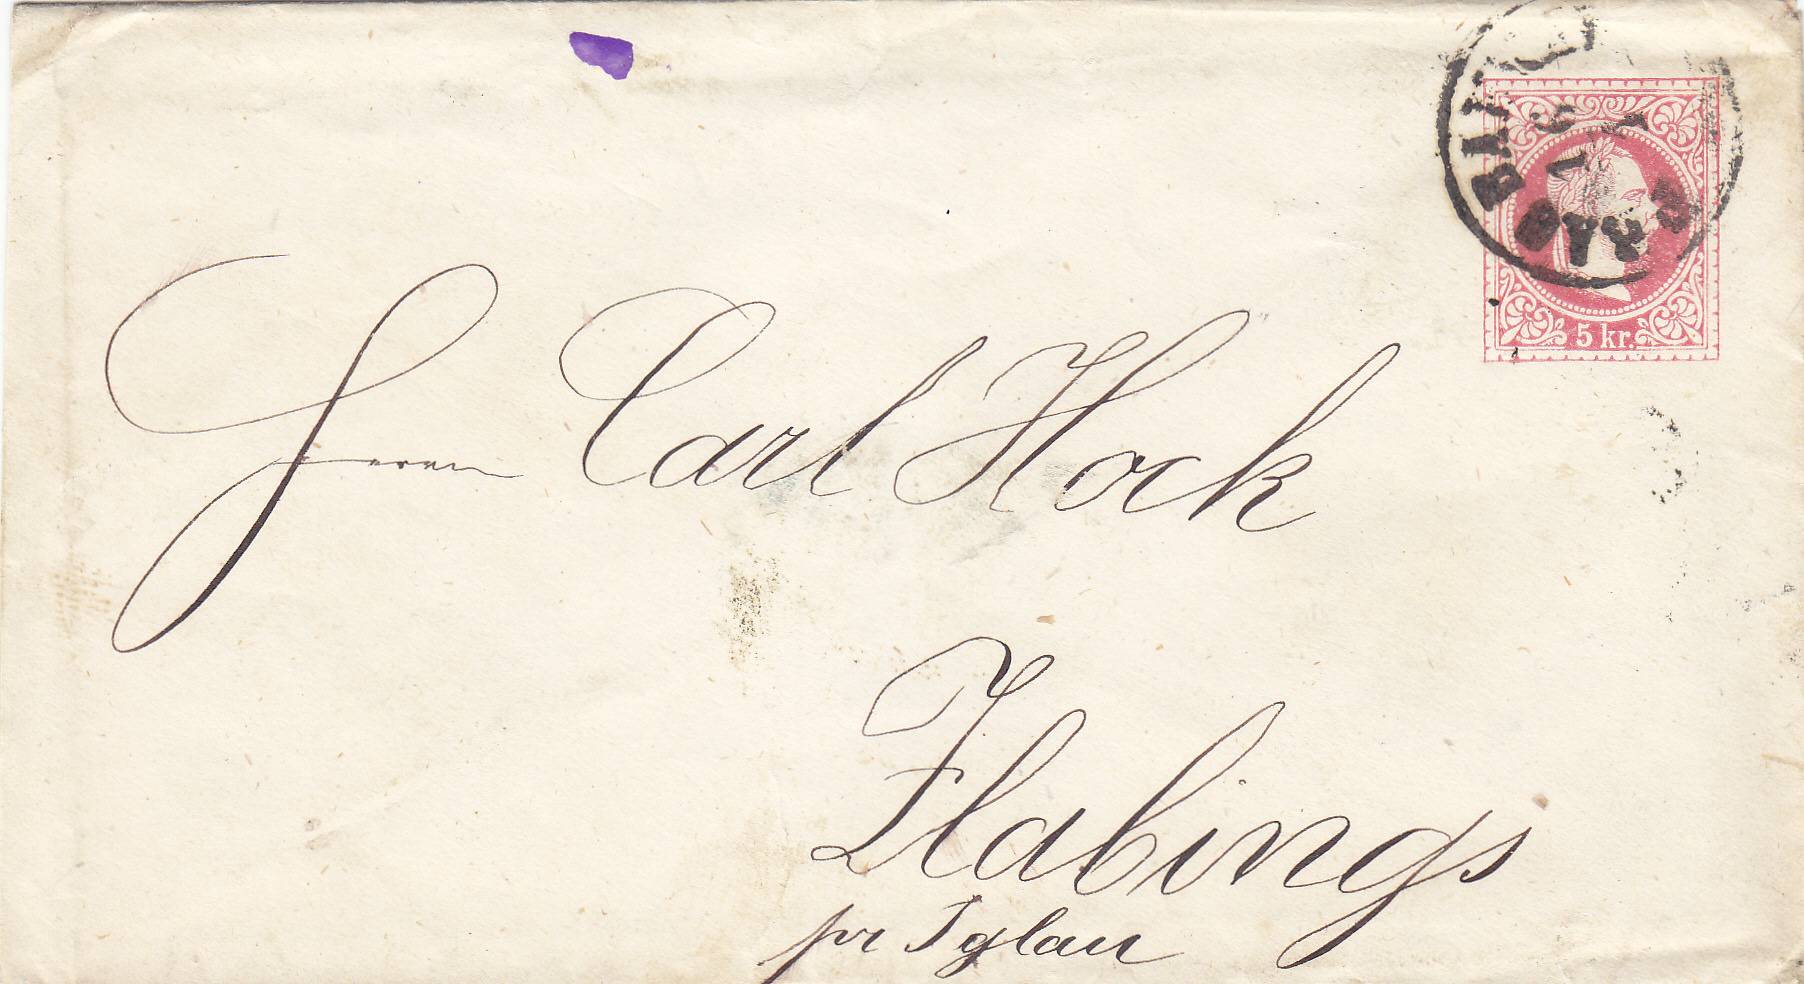 5 kr.
Herrn Carl Hock
Zlabings
pr Iglau